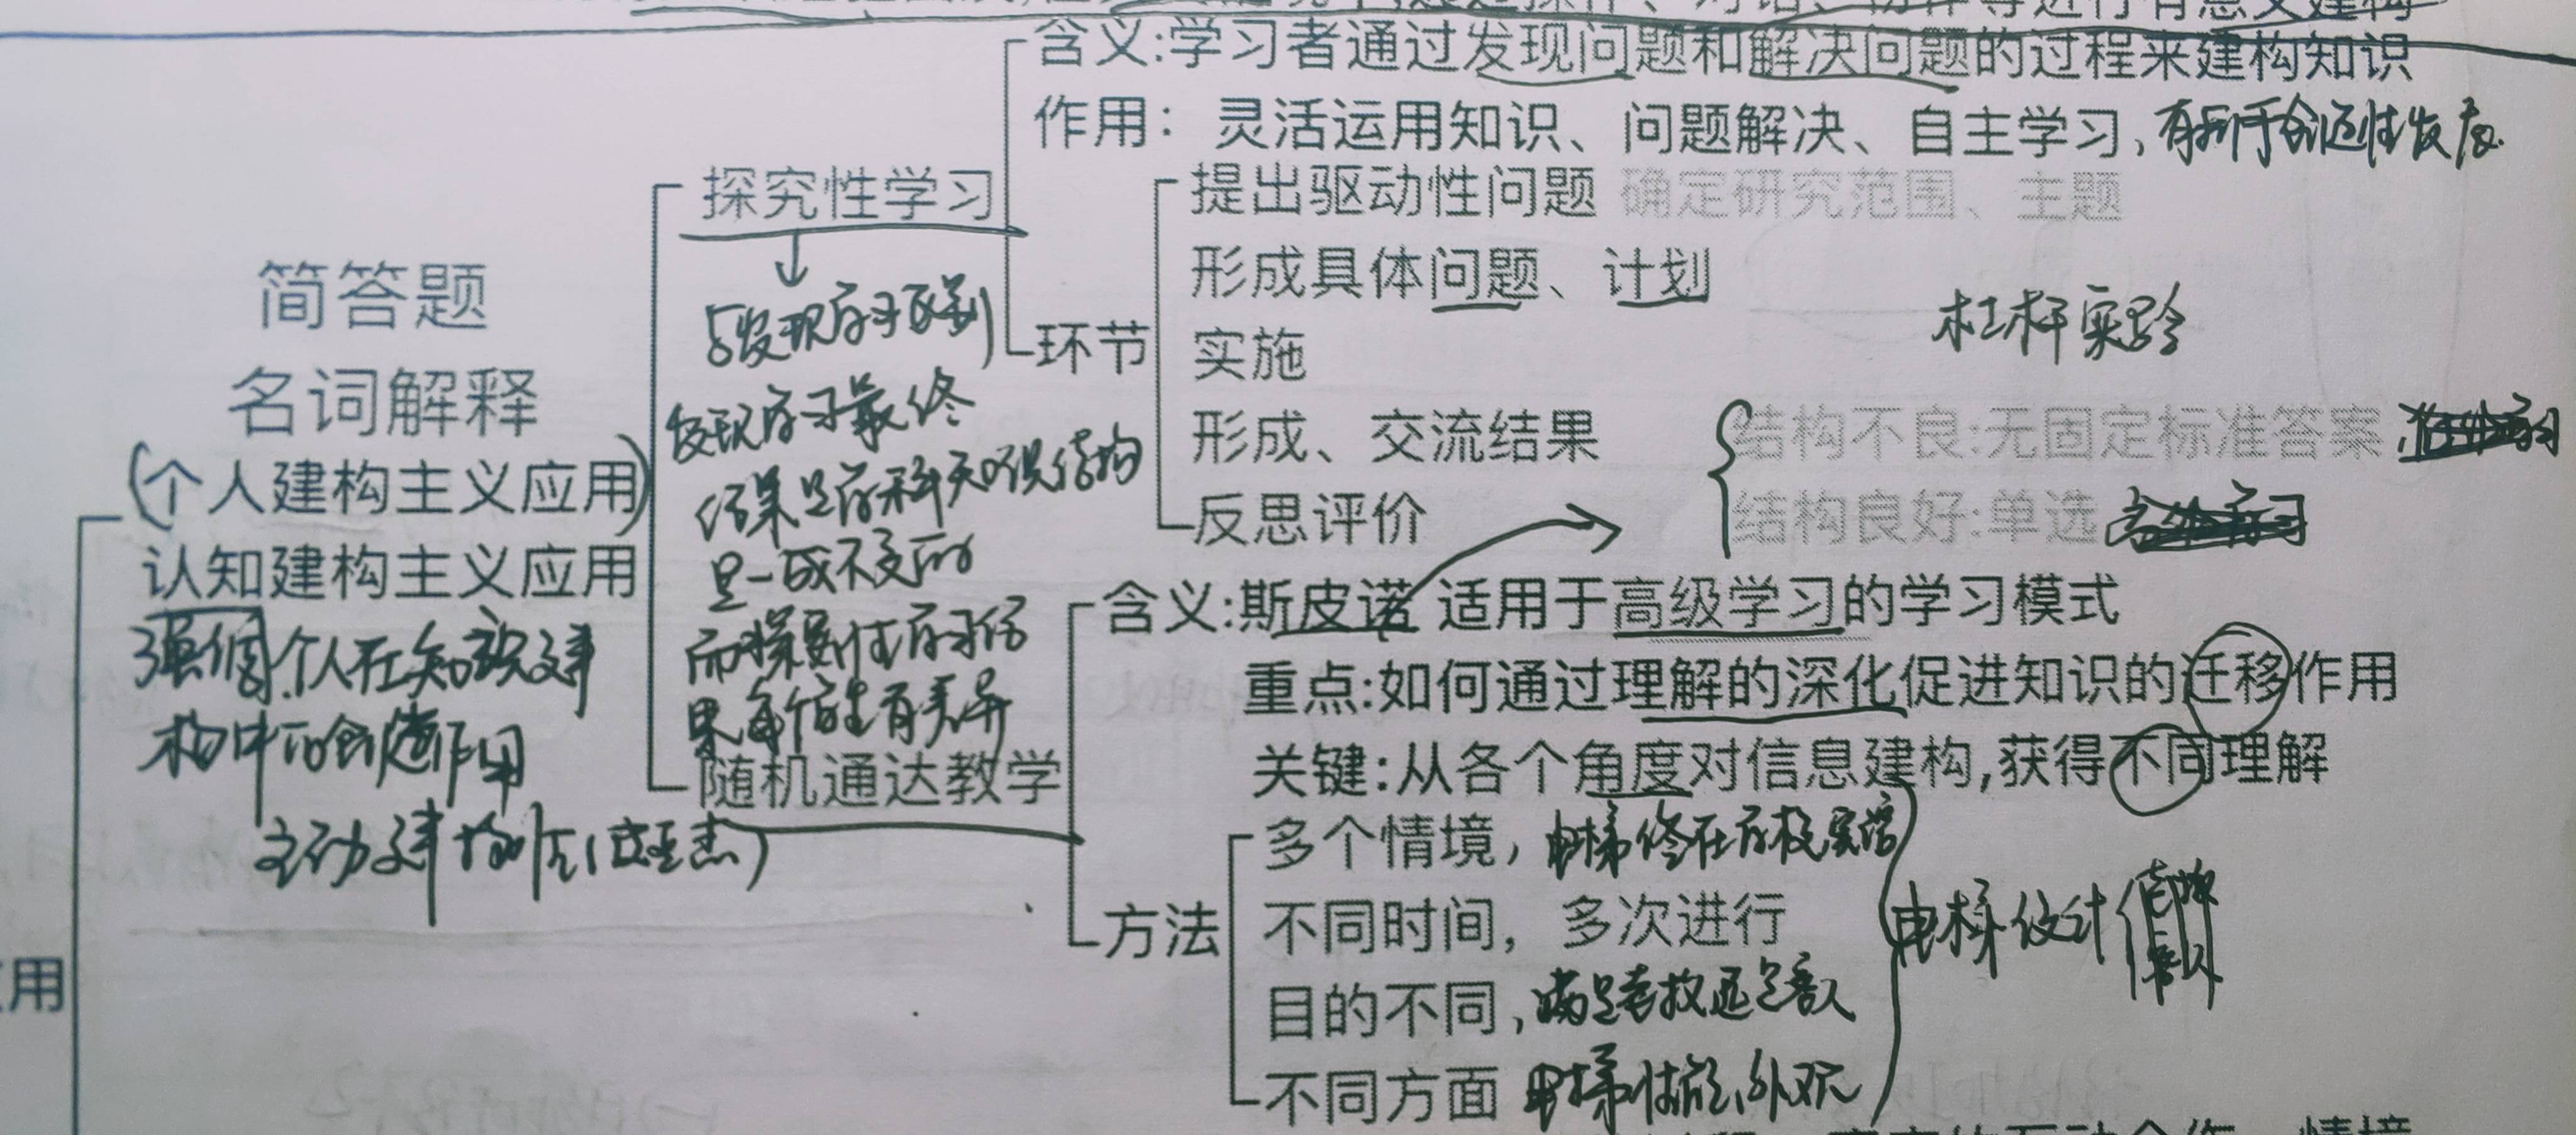 含义:学习者通过发现问题和解决问题的过程来建构知识
作用：灵活运用知识、问题解决、自主学习，有利于创造性发展.
探究性学习
提出驱动性问题 确定研究范围、主题
形成具体问题、计划
环节
实施
形成、交流结果
反思评价
杠杆实验
结构不良:无固定标准答案
结构良好:单选
简答题
名词解释
(个人建构主义应用)
认知建构主义应用
强调个人在知识建
构中的创造作用
主动建构
与发现学习区别
发现学习最终
结果是学科知识结构
是一成不变的
而探究性学习结
果每个学生有差异
随机通达教学
含义:斯皮诺 适用于高级学习的学习模式
重点:如何通过理解的深化促进知识的迁移作用
关键:从各个角度对信息建构,获得不同理解
方法
多个情境，电梯修在学校
不同时间，多次进行
目的不同，满足
不同方面 电梯性能、外观
电梯设计
用